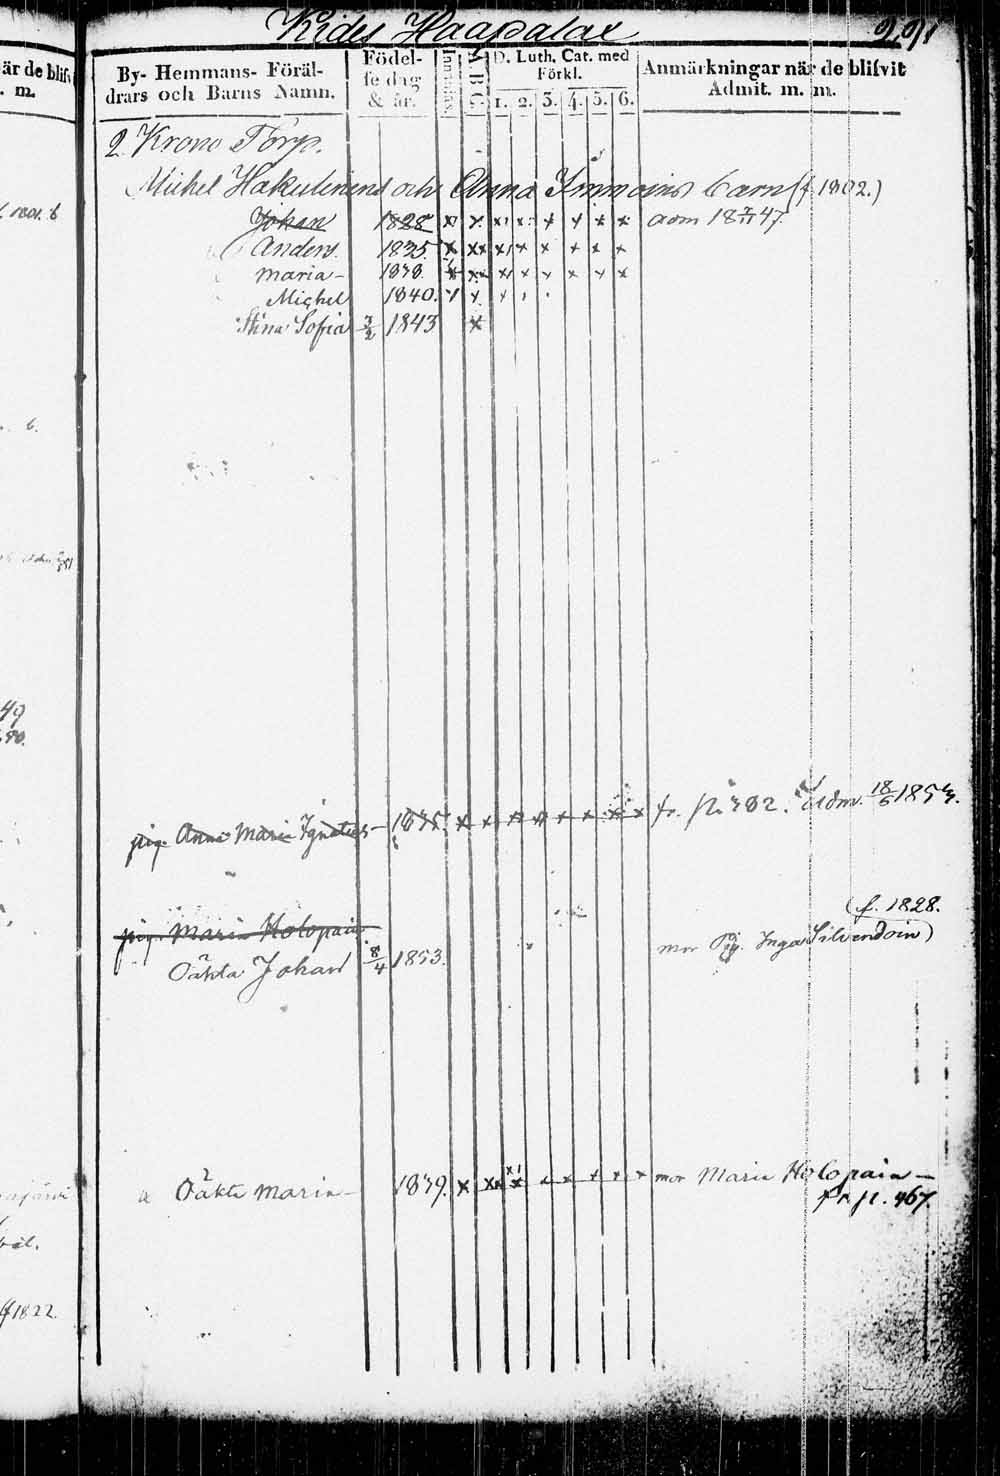 Kides Haapalax 291
By- Hemmans- Föräl-
drars och Barns Namn.
Födel-
se dag
& år.
Innanläsn.
A.B.C.
D. Luth. Cat. med
Förkl.
1. 2. 3. 4. 5. 6.
Anmärkningar när de blifvit
Admit. m. m.
är de blifvit
. m.
2 Krono Torp.
Michel Hakulinens och Anna Immoins barn (f. 1802.)
Johan 1828 adm 18 47.
Anders. 1835.
Maria - 1838.
Michel 1840.
Stina Sofia 3/2 1843
pig. Anna Maria Ignatius - 1835. fr. p. 302. Adm. 18/6 185
pig. Maria Holopain
(f. 1828.
Oäkta Johan 8/4 1853. mor Pig. Inga Silvendoin)
Oäkta Maria - 1839. mor Maria Holopain -
fr. p. 467.
49
f 1822.